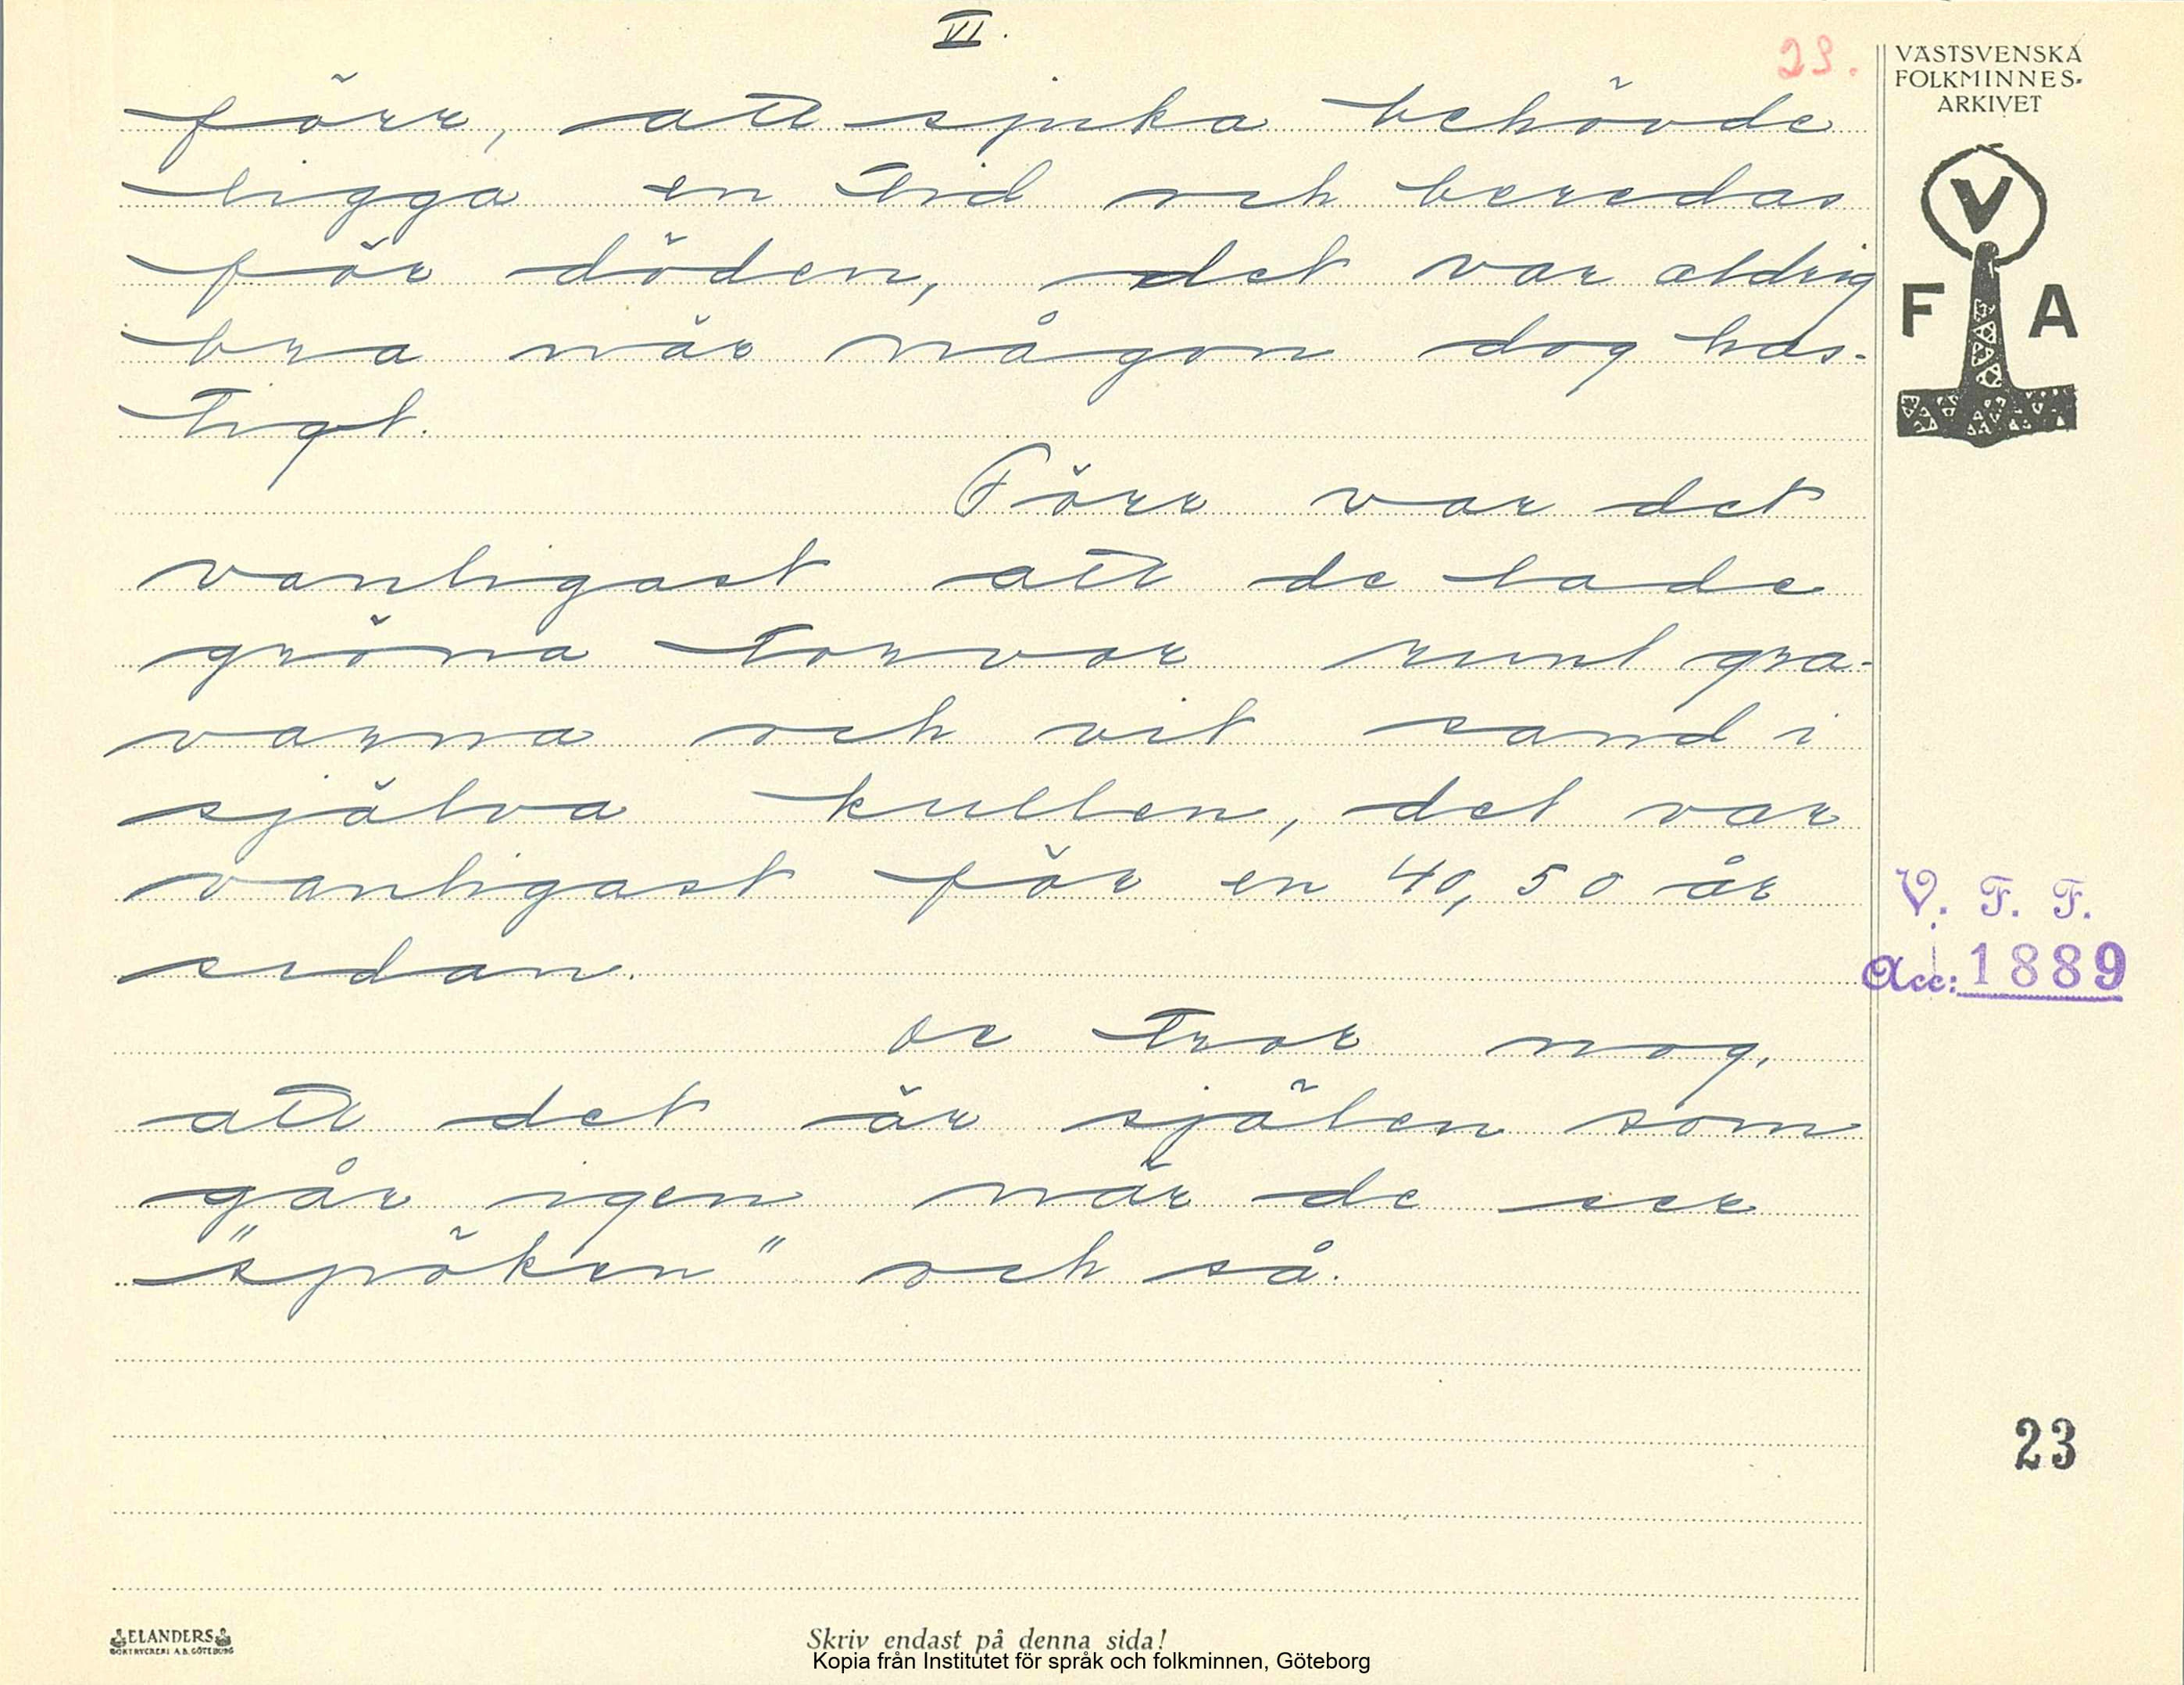 VI.
23.
VÄSTSVENSKA
FOLKMINNES-
ARKIVET
V
F A
förr, att sjuka behövde
ligga en tid och beredas
för döden, det var aldrig
bra när någon dog has-
tigt.
Förr var det
vanligast att de lade
gröna torvor runt gra-
varna och vit sand i
själva kullen, det var
vanligast för en 40, 50 år
sedan.
V. F. F.
Acc: 1889
De tror nog,
att det är själen som
går igen när de ser
"spöken" och så.
23
ELANDERS
BOKTRYCKERI A.B. GÖTEBORG
Skriv endast på denna sida!
Kopia från Institutet för språk och folkminnen, Göteborg